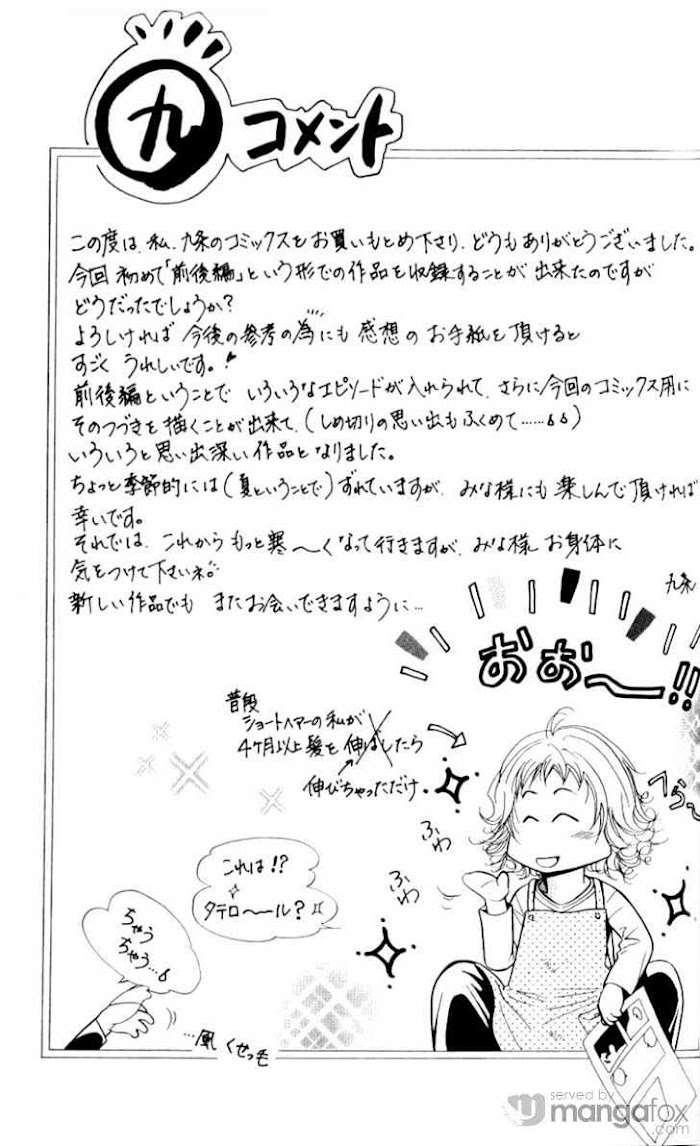 九 コメント
この度は、私、九条のコミックスをお買いもとめ下さり、どうもありがとうございました。
今回 初めて「前後編」という形での作品を収録することが 出来たのですが
どうだったでしょうか?
よろしければ 今後の参考の為にも 感想の お手紙を頂けると
すごく うれしいです。!
前後編ということで いろいろなエピソードが 入れられて、さらに今回のコミックス用に
そのつづきを描くことが出来て、(しめ切りの思い出もふくめて……)
いろいろと思い出深い作品となりました。
ちょっと季節的には(夏ということで)ずれていますが、みな様にも 楽しんで頂ければ
幸いです。
それでは、これから もっと寒〜くなって行きますが、みな様 お身体に
気をつけて下さいネ。
新しい作品でも またお会いできますように…
九条
おお〜!!
普段
ショートヘアーの私が
4ケ月以上髪を伸ばしたら
伸びちゃっただけ
ふわ
ふわ
これは!?
タテロ〜〜ル?
ぢゃう
ぢゃう…
…風 くせっ毛
served by
mangafox
.com